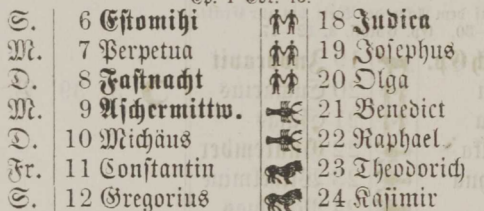 S. 6 Estomihi 18 Judica
M. 7 Perpetua 19 Josephus
D. 8 Fastnacht 20 Olga
M. 9 Aschermittw. 21 Benedict
D. 10 Michäus 22 Raphael
Fr. 11 Constantin 23 Theodorich
S. 12 Gregorius 24 Kasimir